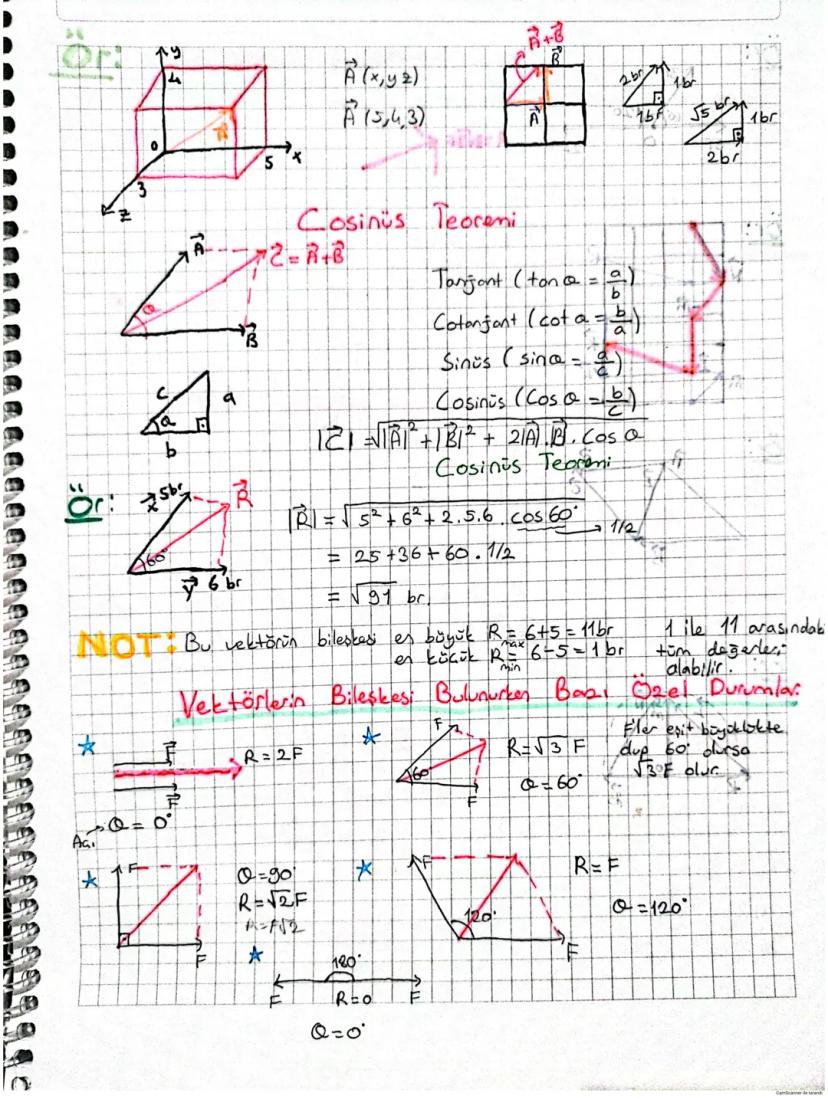 Ör:
y
4
0
A
5
x
3
z
A (x,y z)
A (5,4,3)
A+B
B
A
2br
1br
1br
√5 br
1br
2br
Cosinüs Teoremi
A
C = A+B
θ
B
Tanjant (tan θ = a/b)
Cotanjant (cot a = b/a)
Sinüs (sin θ = a/c)
Cosinüs (Cos θ = b/c)
c
a
a
b
|C| = √|A|² + |B|² + 2|A|.|B|. Cos θ
Cosinüs Teoremi
Ör:
x 5br
R
60°
y 6 br
|R| = √5² + 6² + 2.5.6. cos 60° → 1/2
= 25 + 36 + 60 . 1/2
= √91 br.
NOT: Bu vektörün bileşkesi en büyük Rmax = 6+5 = 11br
en küçük Rmin = 6-5 = 1 br
1 ile 11 arasındaki
tüm değerleri
alabilir.
Vektörlerin Bileşkesi Bulunurken Bazı Özel Durumlar:
F
R = 2F
F
Açı → θ = 0°
F
60°
F
R = √3 F
θ = 60°
F'ler eşit büyüklükte
olup 60° olursa
√3 F olur.
F
F
θ = 90°
R = √2 F
R = F√2
F
120°
F
R = F
θ = 120°
180°
F
R = 0
F
θ = 0°
CamScanner ile tarandı